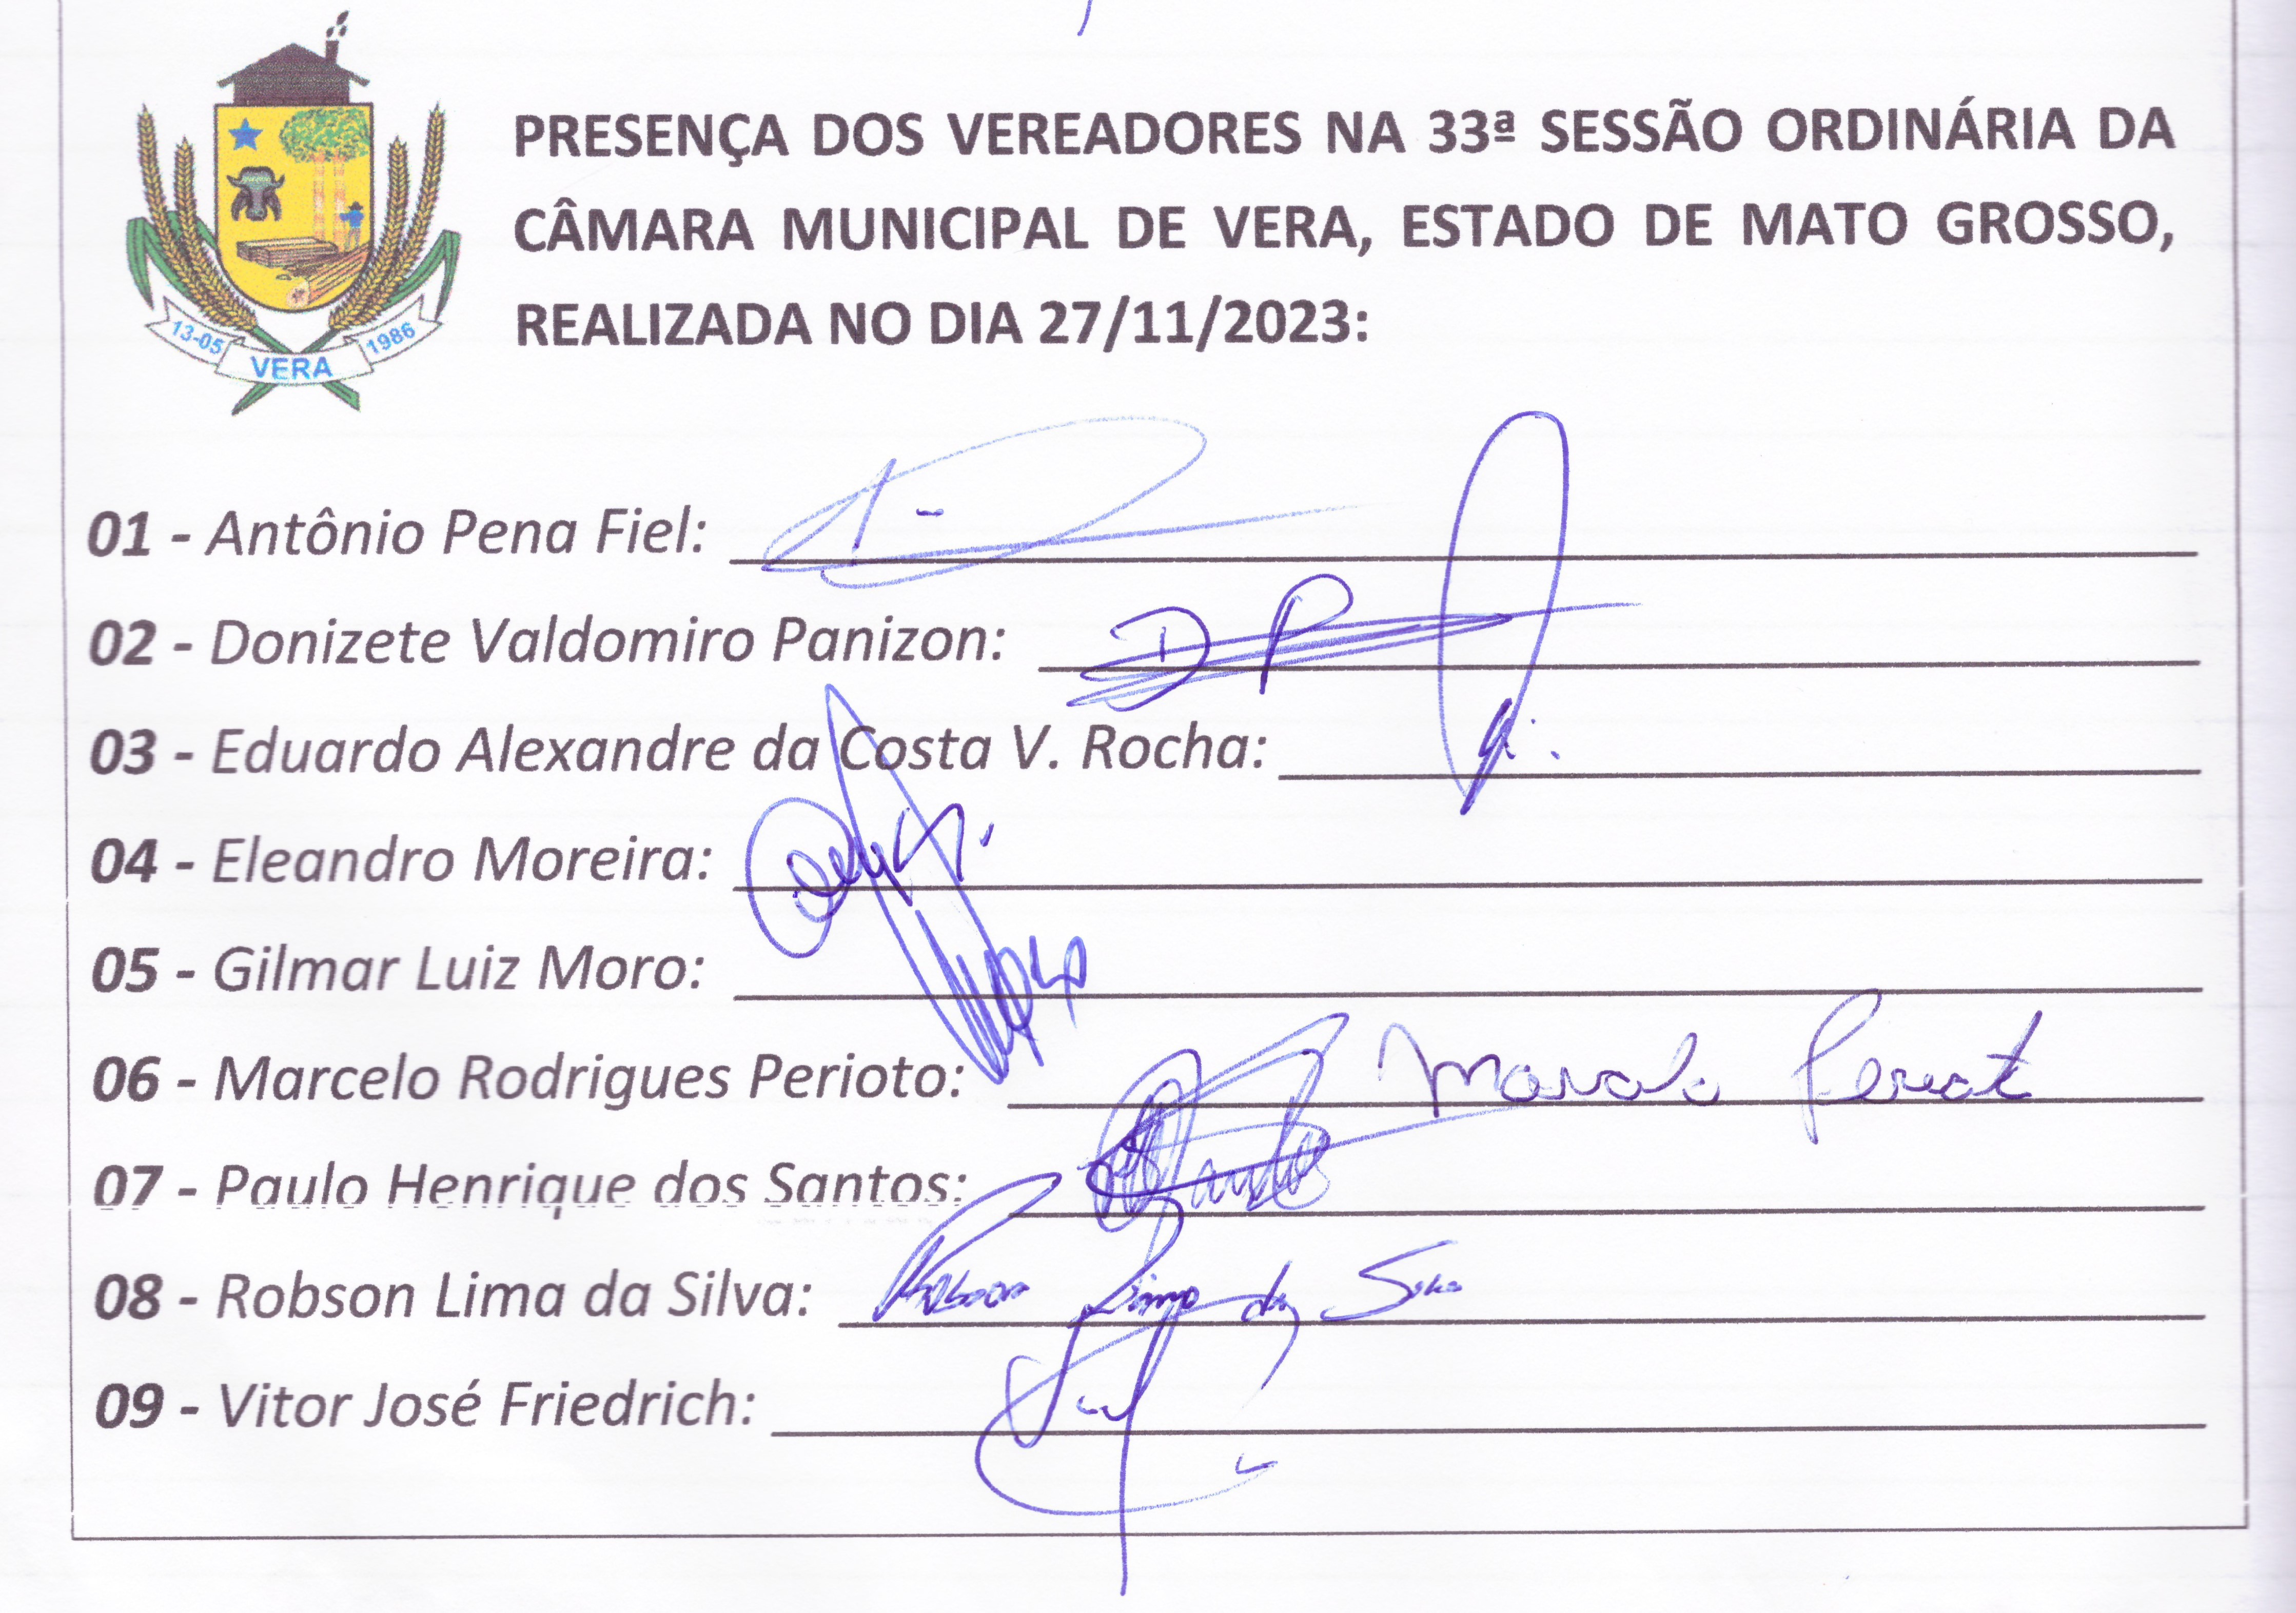 PRESENÇA DOS VEREADORES NA 33ª SESSÃO ORDINÁRIA DA
CÂMARA MUNICIPAL DE VERA, ESTADO DE MATO GROSSO,
REALIZADA NO DIA 27/11/2023:
13-05 VERA 1986
01 - Antônio Pena Fiel:
02 - Donizete Valdomiro Panizon: D P
03 - Eduardo Alexandre da Costa V. Rocha:
04 - Eleandro Moreira:
05 - Gilmar Luiz Moro:
06 - Marcelo Rodrigues Perioto: Marcelo
07 - Paulo Henrique dos Santos:
08 - Robson Lima da Silva: Robson Lima da Silva
09 - Vitor José Friedrich: